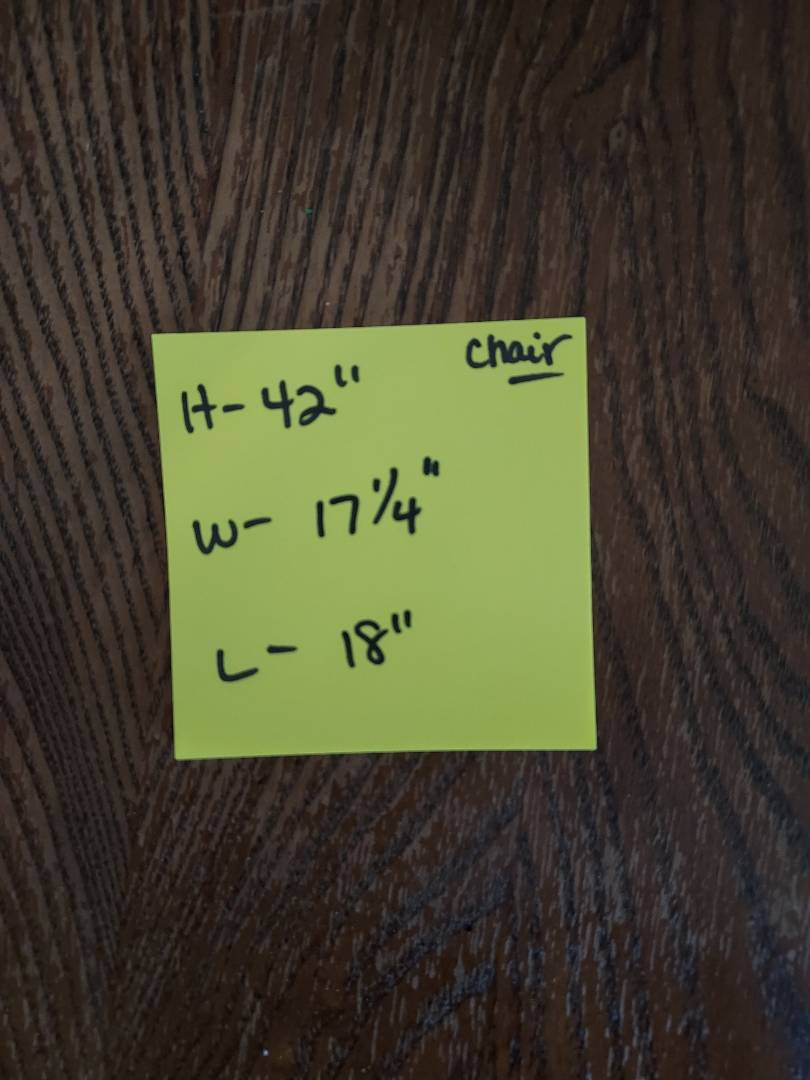 chair
H- 42"
W- 17 1/4"
L- 18"